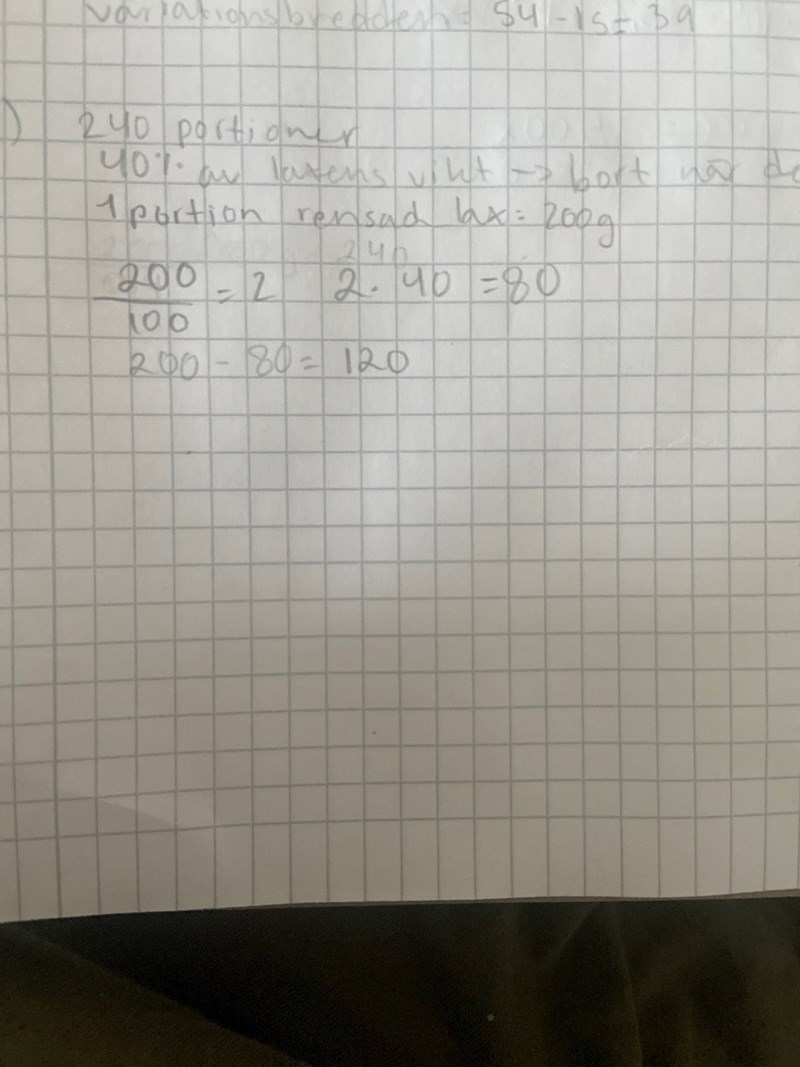 variationsbredden = 54 - 15 = 39
) 240 portioner
40% av laxens vikt -> bort när de
1 portion rensad lax = 200g
240
200/100 = 2 2 · 40 = 80
200 - 80 = 120